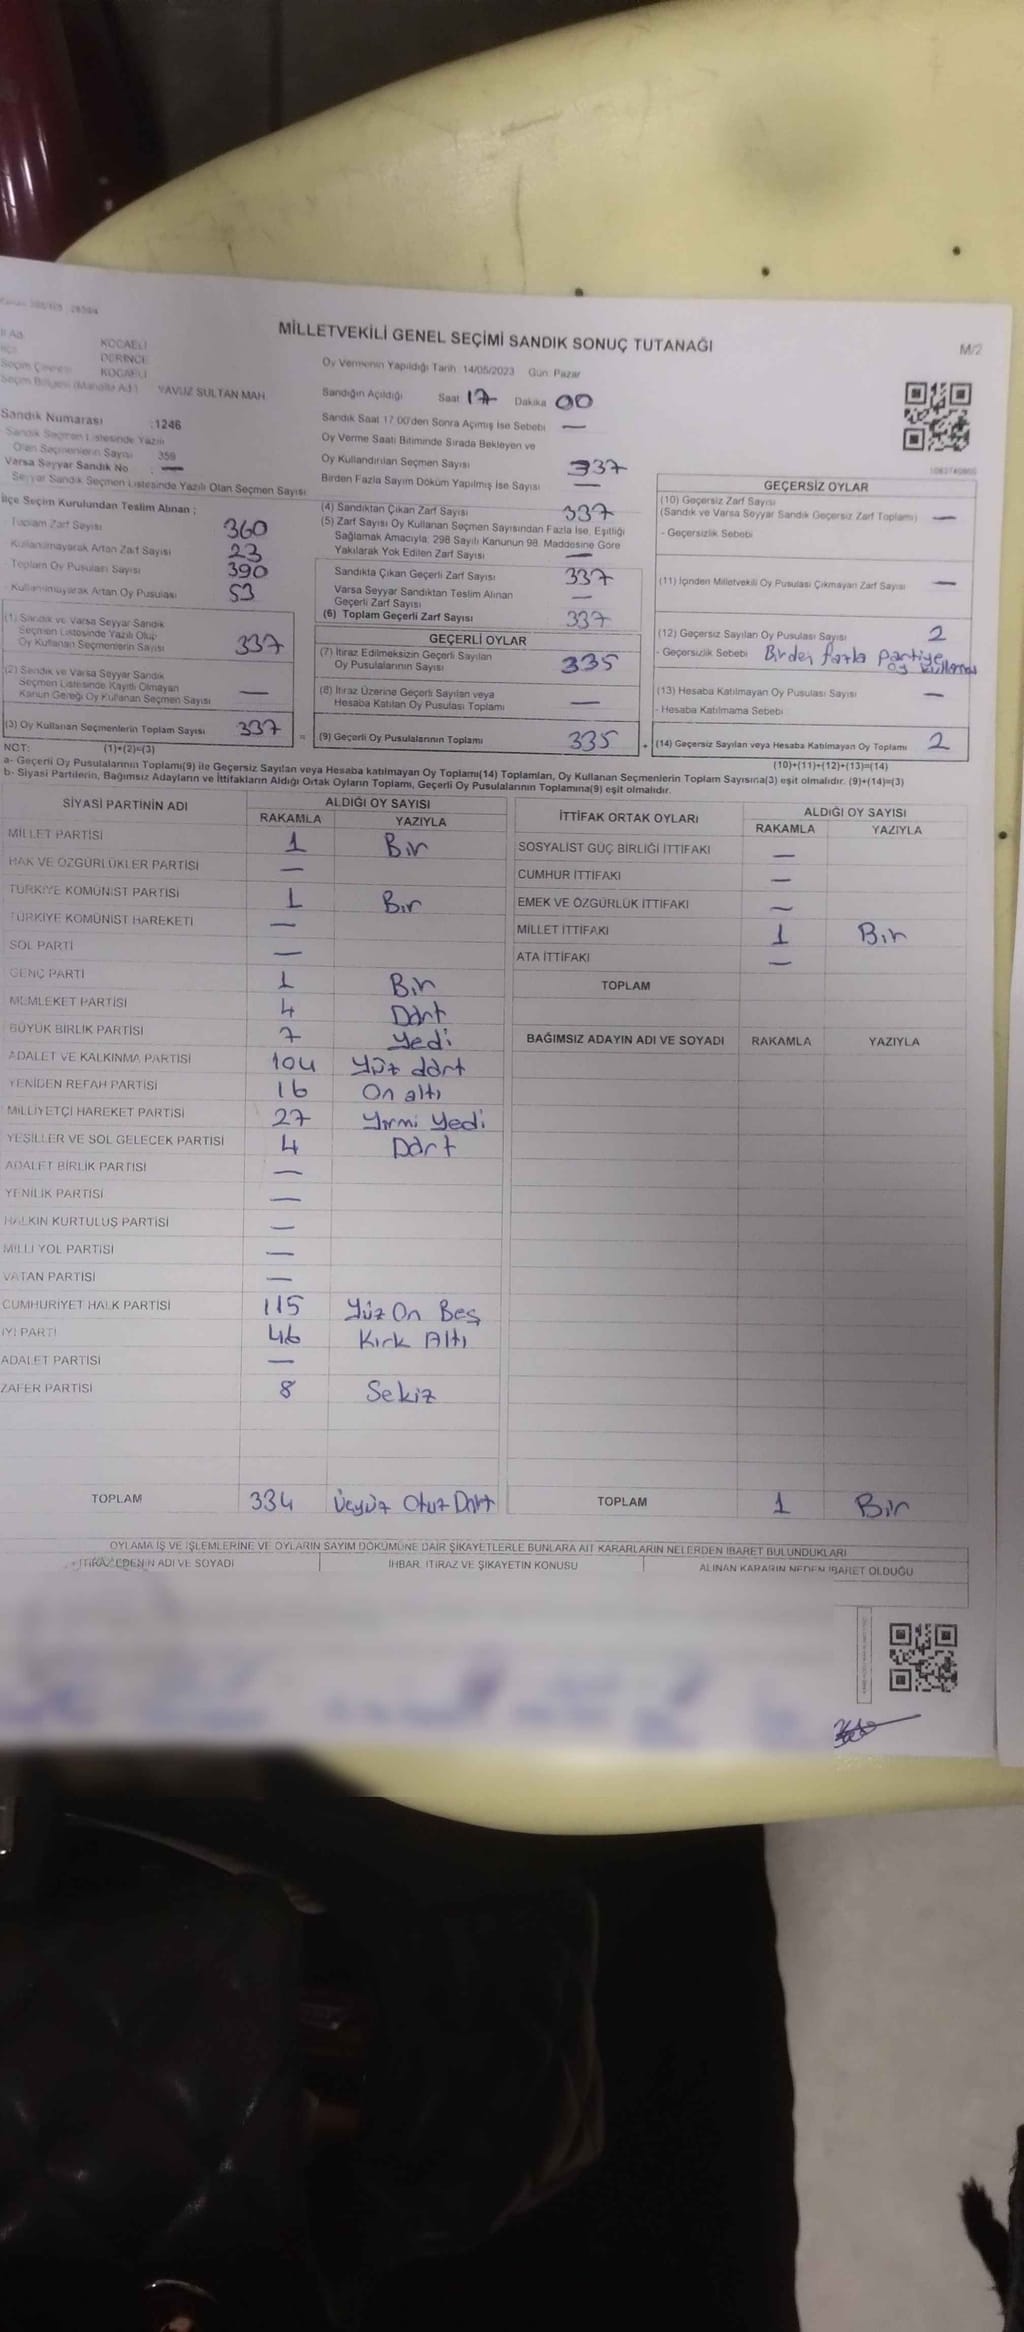 MİLLETVEKİLİ GENEL SEÇİMİ SANDIK SONUÇ TUTANAĞI
M/2
İl Adı KOCAELİ
İlçe DERİNCE
Seçim Çevresi KOCAELİ
Seçim Bölgesi (Mahalle Ad.) YAVUZ SULTAN MAH.
Sandık Numarası :1246
Sandık Seçmen Listesinde Yazılı
Olan Seçmenlerin Sayısı 359
Varsa Seyyar Sandık No : —
Seyyar Sandık Seçmen Listesinde Yazılı Olan Seçmen Sayısı
Oy Vermenin Yapıldığı Tarih 14/05/2023 Gün Pazar
Sandığın Açıldığı Saat 17 Dakika 00
Sandık Saat 17:00'den Sonra Açımış İse Sebebi —
Oy Verme Saati Bitiminde Sırada Bekleyen ve
Oy Kullandırılan Seçmen Sayısı 337
Birden Fazla Sayım Döküm Yapılmış İse Sayısı —
İlçe Seçim Kurulundan Teslim Alınan ;
- Toplam Zarf Sayısı 360
- Kullanılmayarak Artan Zarf Sayısı 23
- Toplam Oy Pusulası Sayısı 390
- Kullanılmayarak Artan Oy Pusulası 53
(1) Sandık ve Varsa Seyyar Sandık
Seçmen Listesinde Yazılı Olup
Oy Kullanan Seçmenlerin Sayısı 337
(2) Sandık ve Varsa Seyyar Sandık
Seçmen Listesinde Kayıtlı Olmayan
Kanun Gereği Oy Kullanan Seçmen Sayısı —
(3) Oy Kullanan Seçmenlerin Toplam Sayısı 337
(4) Sandıktan Çıkan Zarf Sayısı 337
(5) Zarf Sayısı Oy Kullanan Seçmen Sayısından Fazla İse, Eşitliği
Sağlamak Amacıyla; 298 Sayılı Kanunun 98. Maddesine Göre
Yakılarak Yok Edilen Zarf Sayısı —
Sandıkta Çıkan Geçerli Zarf Sayısı 337
Varsa Seyyar Sandıktan Teslim Alınan
Geçerli Zarf Sayısı —
(6) Toplam Geçerli Zarf Sayısı 337
GEÇERLİ OYLAR
(7) İtiraz Edilmeksizin Geçerli Sayılan
Oy Pusulalarının Sayısı 335
(8) İtiraz Üzerine Geçerli Sayılan veya
Hesaba Katılan Oy Pusulası Toplamı —
(9) Geçerli Oy Pusulalarının Toplamı 335
GEÇERSİZ OYLAR
(10) Geçersiz Zarf Sayısı
(Sandık ve Varsa Seyyar Sandık Geçersiz Zarf Toplamı) —
- Geçersizlik Sebebi
(11) İçinden Milletvekili Oy Pusulası Çıkmayan Zarf Sayısı —
(12) Geçersiz Sayılan Oy Pusulası Sayısı 2
- Geçersizlik Sebebi Birden fazla partiye
oy kullanma
(13) Hesaba Katılmayan Oy Pusulası Sayısı —
- Hesaba Katılmama Sebebi
(14) Geçersiz Sayılan veya Hesaba Katılmayan Oy Toplamı 2
NOT: (1)+(2)=(3)
(10)+(11)+(12)+(13)=(14)
a- Geçerli Oy Pusulalarının Toplamı(9) ile Geçersiz Sayılan veya Hesaba katılmayan Oy Toplamı(14) Toplamları, Oy Kullanan Seçmenlerin Toplam Sayısına(3) eşit olmalıdır. (9)+(14)=(3)
b- Siyasi Partilerin, Bağımsız Adayların ve İttifakların Aldığı Ortak Oyların Toplamı, Geçerli Oy Pusulalarının Toplamına(9) eşit olmalıdır.
SİYASİ PARTİNİN ADI ALDIĞI OY SAYISI
RAKAMLA YAZIYLA
MİLLET PARTİSİ 1 Bir
HAK VE ÖZGÜRLÜKLER PARTİSİ —
TÜRKİYE KOMÜNİST PARTİSİ 1 Bir
TÜRKİYE KOMÜNİST HAREKETİ —
SOL PARTİ —
GENÇ PARTİ 1 Bir
MEMLEKET PARTİSİ 4 Dört
BÜYÜK BİRLİK PARTİSİ 7 Yedi
ADALET VE KALKINMA PARTİSİ 104 Yüz dört
YENİDEN REFAH PARTİSİ 16 On altı
MİLLİYETÇİ HAREKET PARTİSİ 27 Yirmi Yedi
YEŞİLLER VE SOL GELECEK PARTİSİ 4 Dört
ADALET BİRLİK PARTİSİ —
YENİLİK PARTİSİ —
HALKIN KURTULUŞ PARTİSİ —
MİLLİ YOL PARTİSİ —
VATAN PARTİSİ —
CUMHURİYET HALK PARTİSİ 115 Yüz On Beş
İYİ PARTİ 46 Kırk Altı
ADALET PARTİSİ —
ZAFER PARTİSİ 8 Sekiz
TOPLAM 334 Üçyüz Otuz Dört
İTTİFAK ORTAK OYLARI ALDIĞI OY SAYISI
RAKAMLA YAZIYLA
SOSYALİST GÜÇ BİRLİĞİ İTTİFAKI —
CUMHUR İTTİFAKI —
EMEK VE ÖZGÜRLÜK İTTİFAKI —
MİLLET İTTİFAKI 1 Bir
ATA İTTİFAKI —
TOPLAM
BAĞIMSIZ ADAYIN ADI VE SOYADI RAKAMLA YAZIYLA
TOPLAM 1 Bir
OYLAMA İŞ VE İŞLEMLERİNE VE OYLARIN SAYIM DÖKÜMÜNE DAİR ŞİKAYETLERLE BUNLARA AİT KARARLARIN NELERDEN İBARET BULUNDUKLARI
İTİRAZ EDENİN ADI VE SOYADI İHBAR, İTİRAZ VE ŞİKAYETİN KONUSU ALINAN KARARIN NEDEN İBARET OLDUĞU